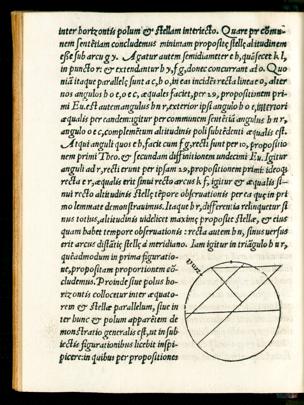 inter horizontis polum & stellam interiecto. Quare per cōmu
nem sentētiam concludemus minimam propositę stellę altitudinem
esse sub arcu g y. Agatur autem semidiameter e h, quæ secet k l,
in puncto r: & extendantur b y, f g, donec concurrant ad o. Quo
niā itaque parallelę sunt a c, b o, in eas incidēs recta linea e o, alter
nos angulos b o e, o e c, æquales faciet, per 29, propositionem pri
mi Eu. est autem angulus h n r, exterior ipsi angulo b o e, interiori
æqualis per eandem: igitur per communem sentētiā angulus h n r,
angulo o e c, complemētum altitudinis poli subtēdenti æqualis est.
At qui anguli quos e h, facit cum f g, recti sunt per 10, propositio
nem primi Theo. & secundam diffinitionem undecimi Eu. Igitur
anguli ad r, recti erunt per ipsam 29, propositionem primi: ideoq;
recta e r, æqualis erit sinui recto arcus k f, igitur & æqualis si
nui recto altitudinis stellę tēpore observationis per ea que in pri
mo lemmate demonstravimus. Itaque h r, differentia relinquetur si
nus totius, altitudinis uidelicet maximę propositę stellæ, & eius
quam habet tempore observationis: recta autem h n, sinus uersus
erit arcus distātię stellę à meridiano. Iam igitur in triāgulo h n r,
quēadmodum in prima figuratio-
ue, propositam proportionem cō-
cludemus. Proinde siue polus ho-
rizontis collocetur inter æquato-
rem & stellæ parallelum, siue in
ter hunc & polum apparētem de
monstratio generalis est, ut in sub
iectis figurationibus licebit inspi-
picere: in quibus per propositiones